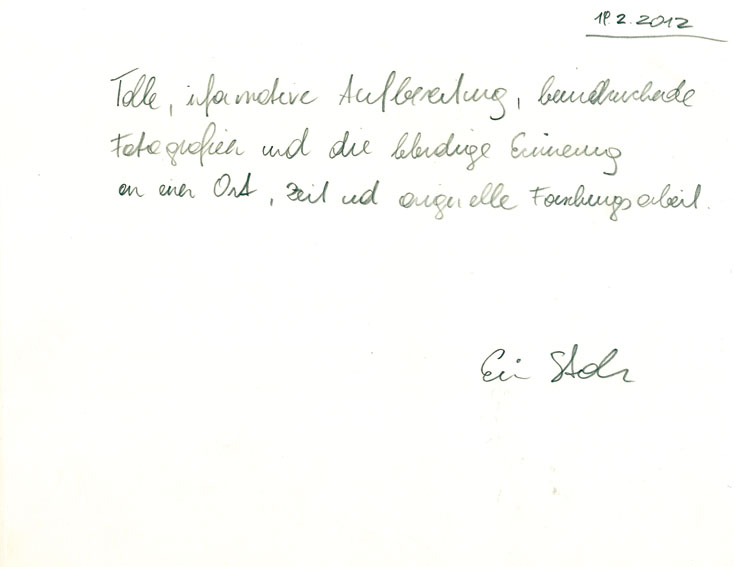 19.2.2012
Tolle, informative Aufbereitung, beeindruckende
Fotografien und die lebendige Erinnerung
an einen Ort, Zeit und originelle Forschungsarbeit.